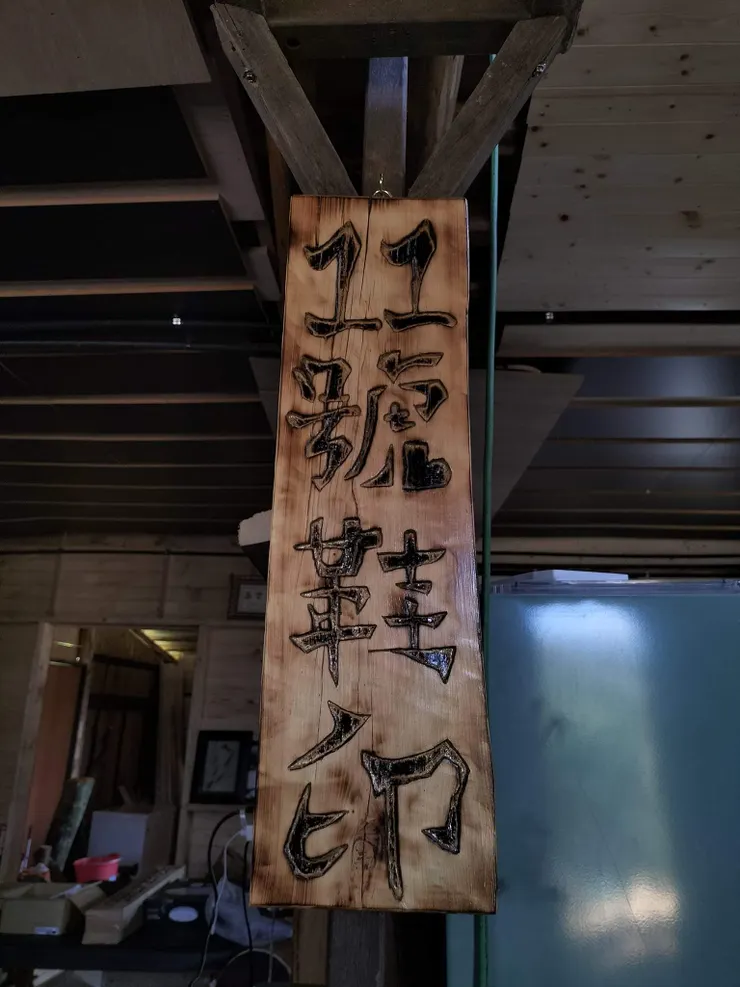 11號鞋印